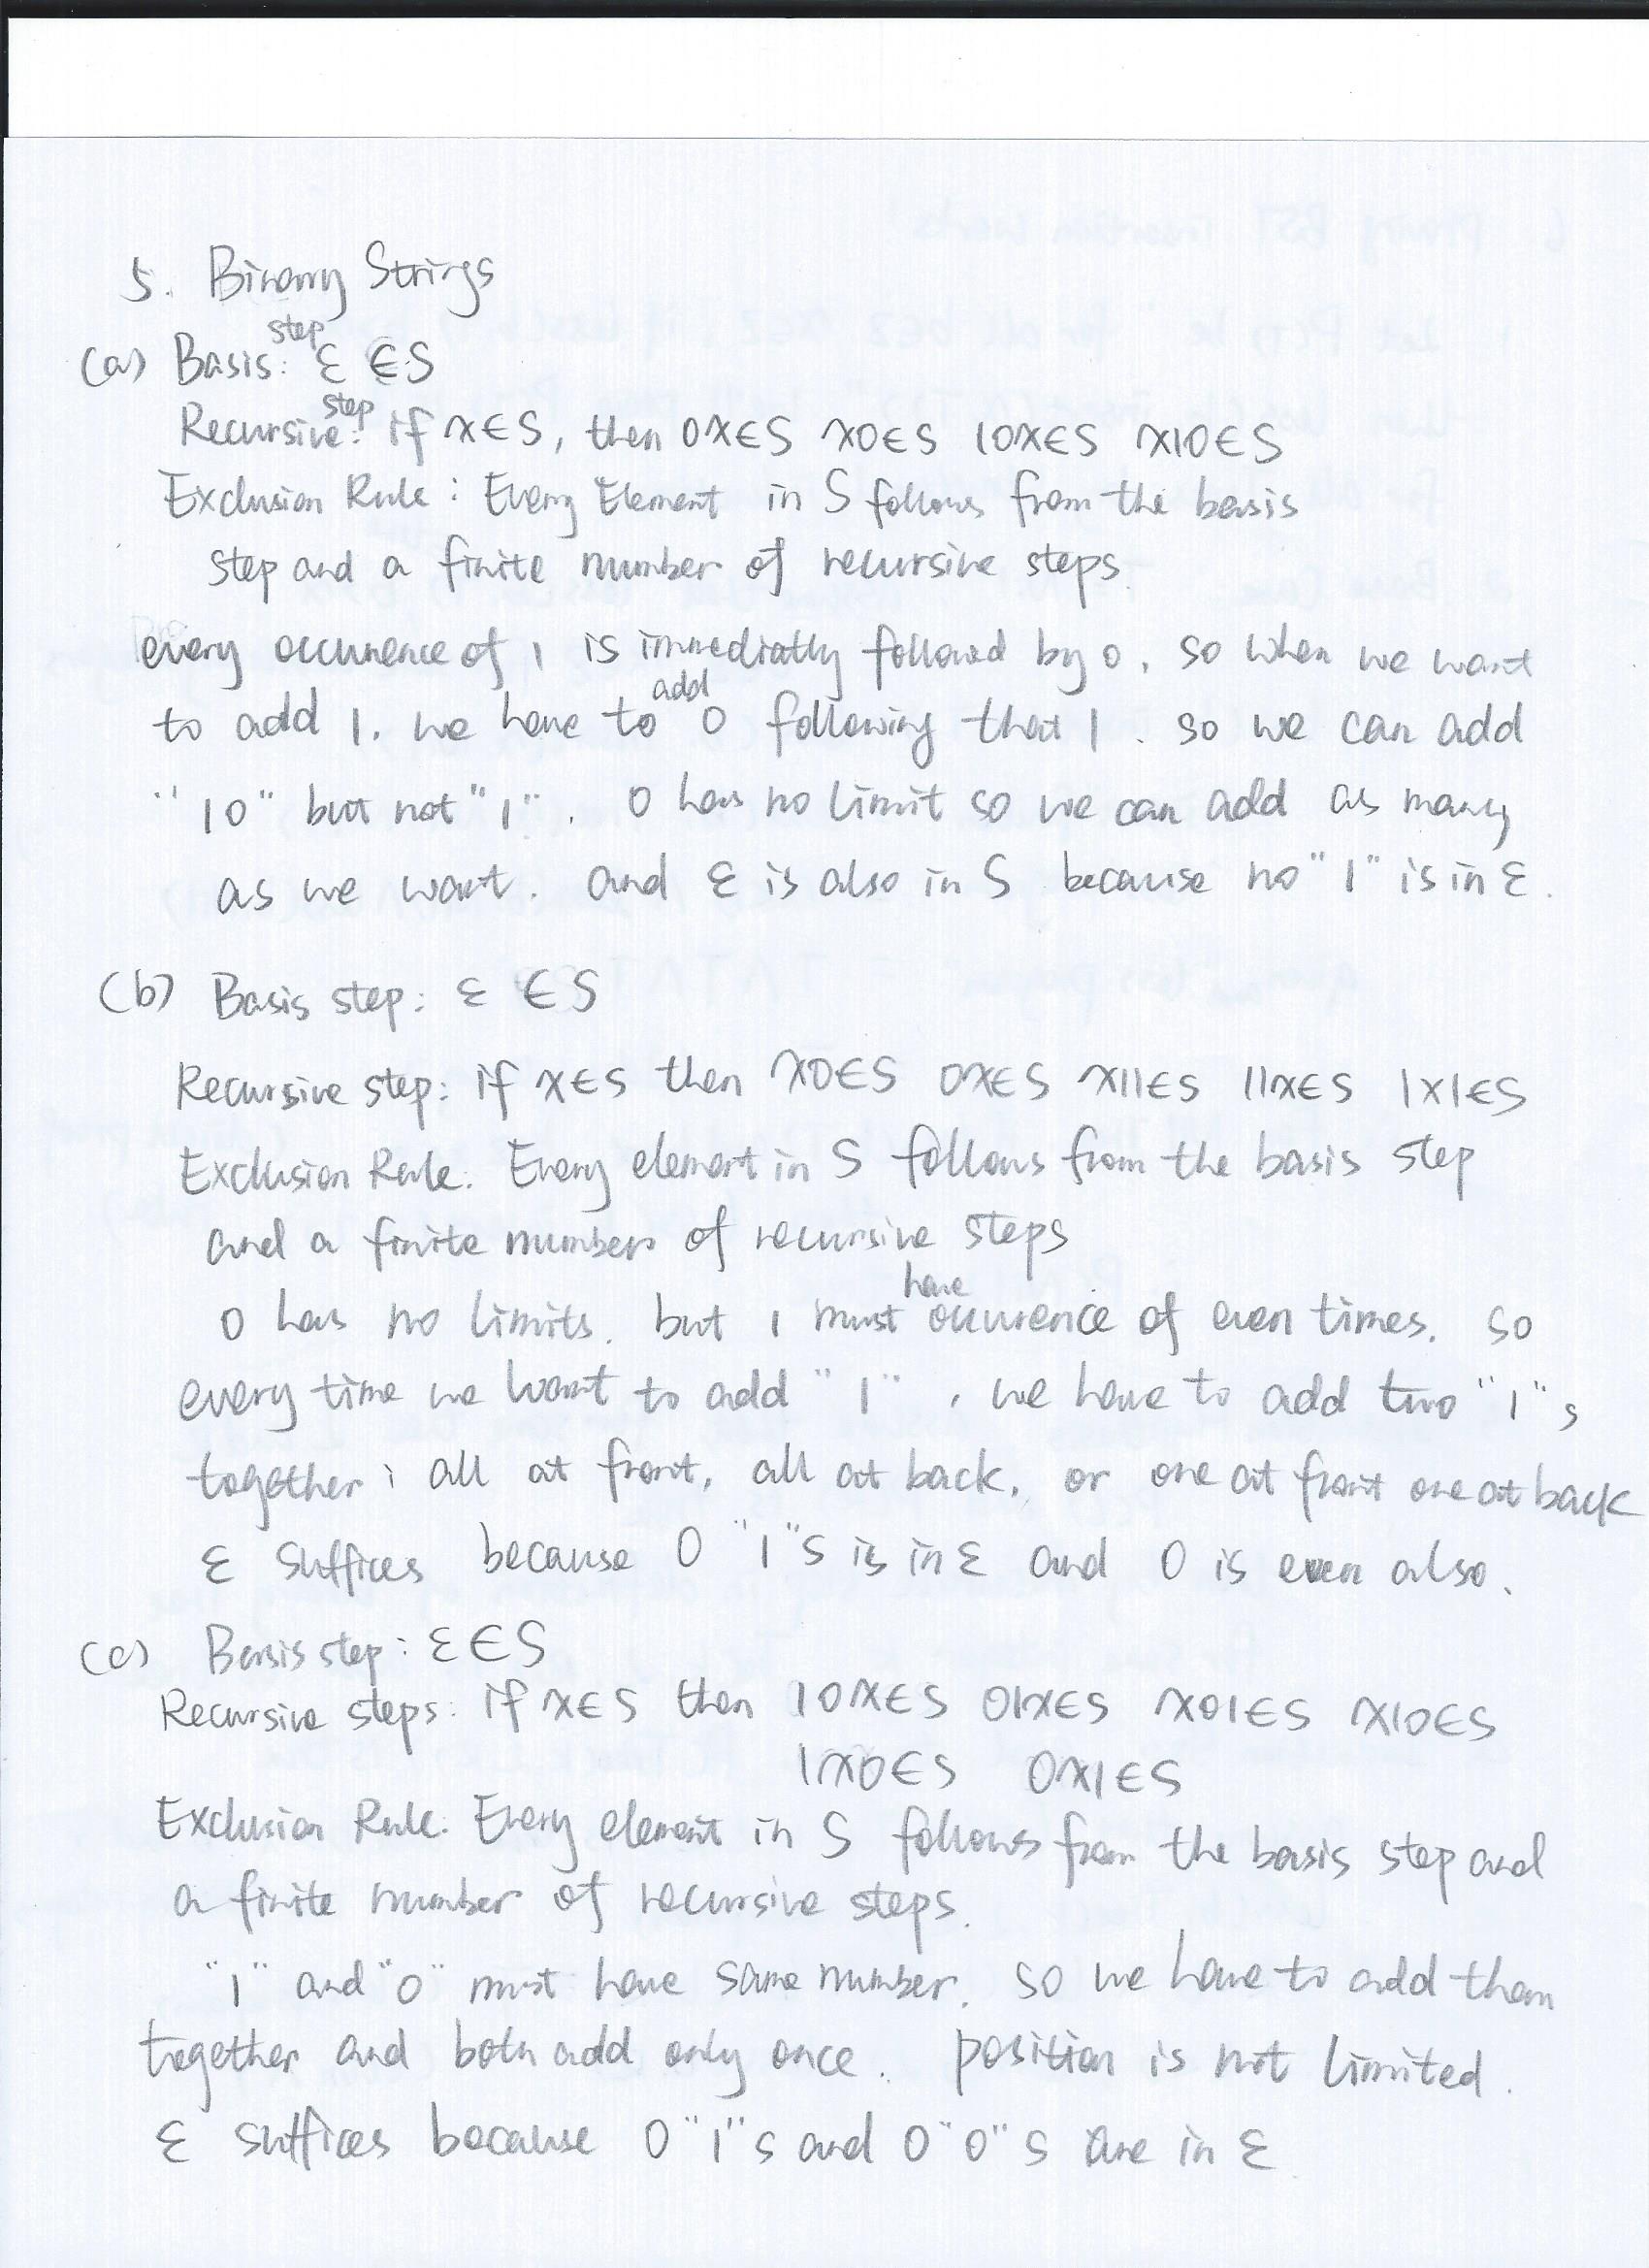 5. Binary Strings
(a) Basis step: ε ∈ S
Recursive step: if x∈S, then 0x∈S x0∈S 10x∈S x10∈S
Exclusion Rule: Every Element in S follows from the basis
step and a finite number of recursive steps.
every occurence of 1 is immediatly followed by 0, so when we want
to add 1, we have to add 0 following that 1. so we can add
"10" but not "1". 0 has no limit so we can add as many
as we want. and ε is also in S because no "1" is in ε.
(b) Basis step: ε ∈ S
Recursive step: if x∈S then x0∈S 0x∈S x11∈S 11x∈S 1x1∈S
Exclusion Rule. Every element in S follows from the basis step
and a finite number of recursive steps
0 has no limits. but 1 must have occurence of even times. so
every time we want to add "1", we have to add two "1"s
together: all at front, all at back, or one at front one at back
ε suffices because 0 "1"s is in ε and 0 is even also.
(c) Basis step: ε∈S
Recursive steps: if x∈S then 10x∈S 01x∈S x01∈S x10∈S
1x0∈S 0x1∈S
Exclusion Rule. Every element in S follows from the basis step and
a finite number of recursive steps.
"1" and "0" must have same number. so we have to add them
together and both add only once. position is not limited.
ε suffices because 0 "1"s and 0 "0"s are in ε